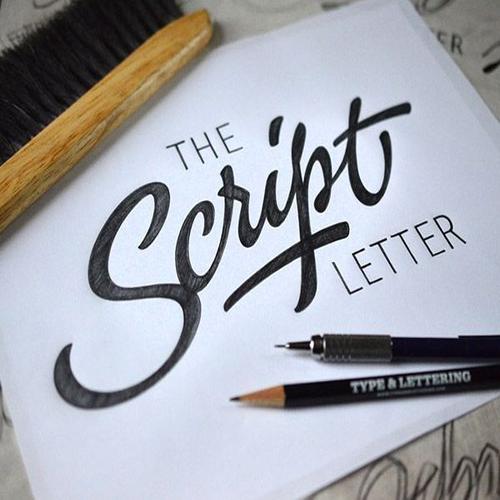 THE
Script
LETTER
TYPE & LETTERING